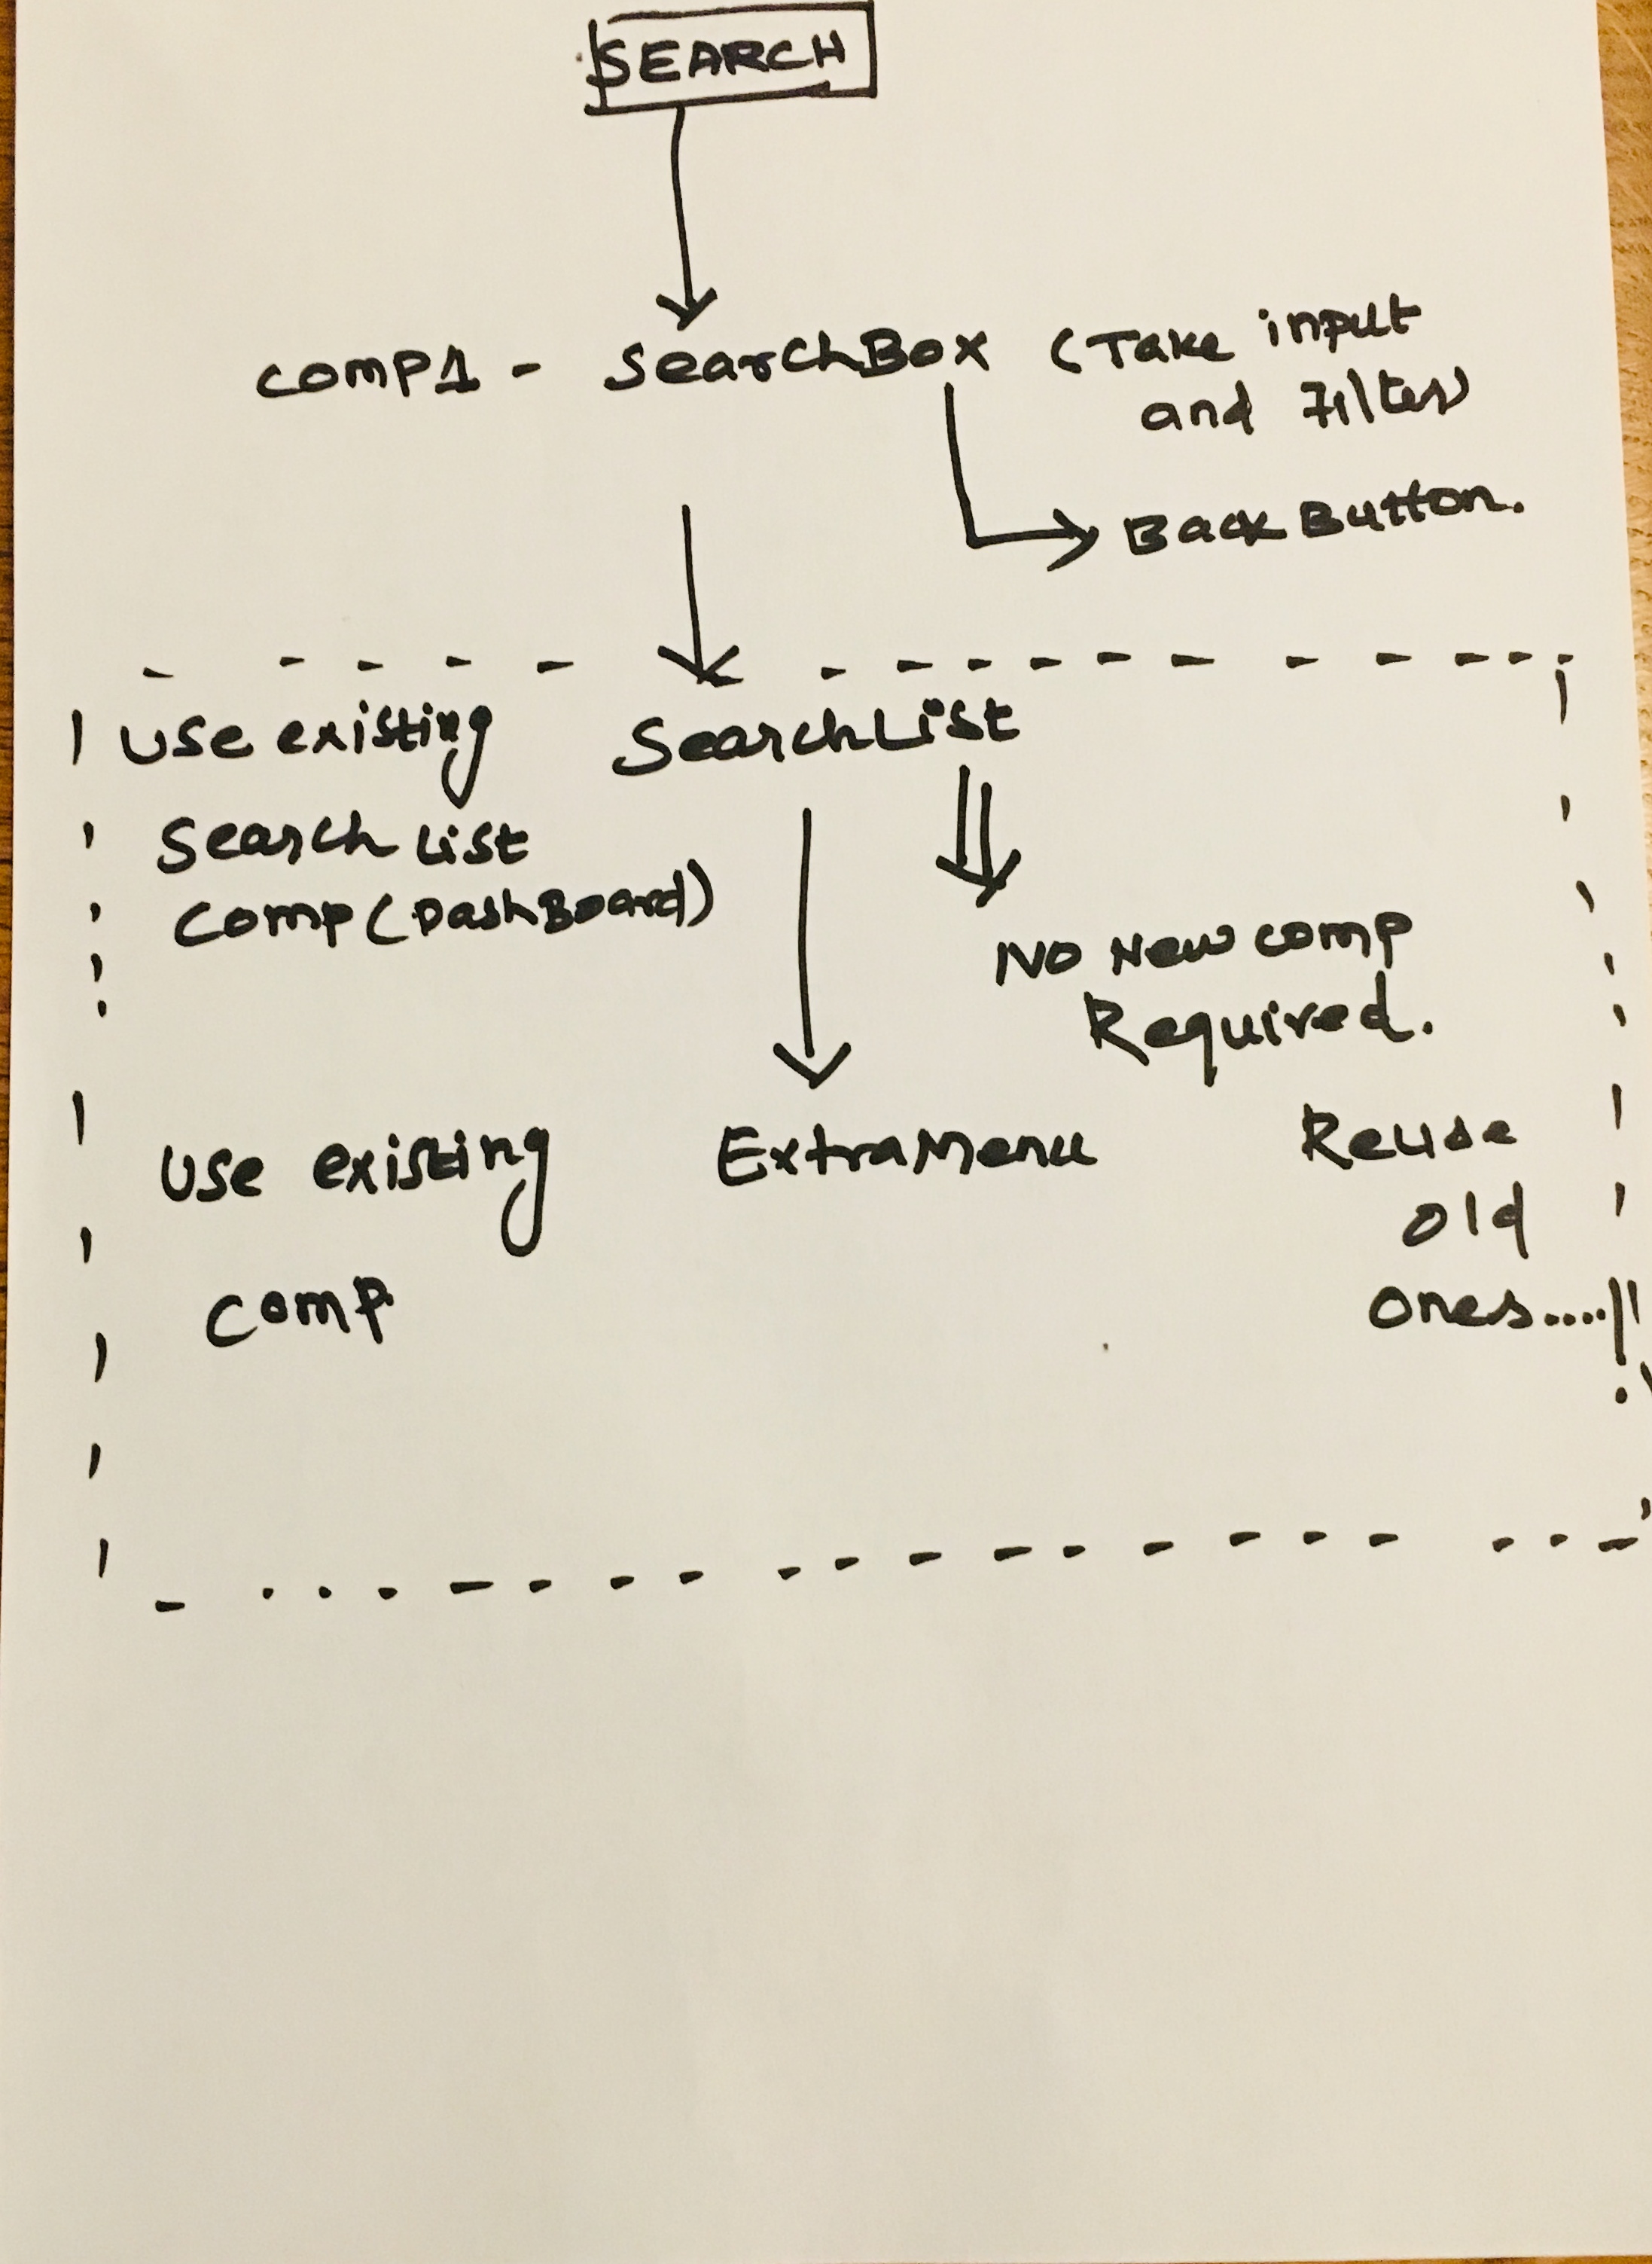 SEARCH
comp1 - SearchBox (Take input
and Filter)
Back Button.
Use existing SearchList
Search List
Comp (DashBoard)
No New comp
Required.
Use existing ExtraMenu Reuse
old
Comp
ones.....!!